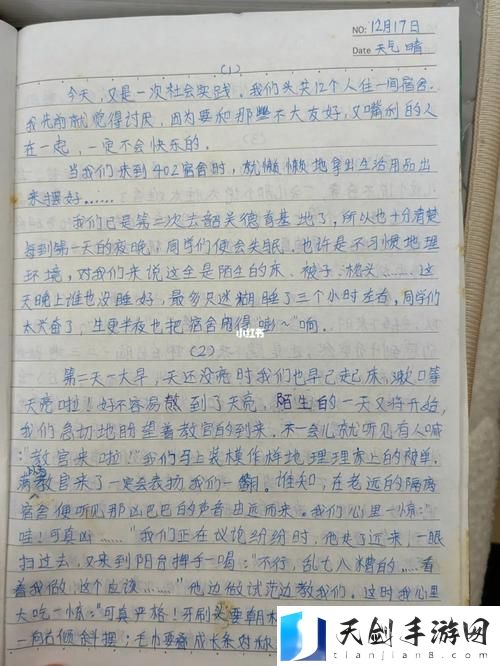 NO: 12月17日
Date 天气 晴
(1)
今天，又是一次社会实践，我们头共12个人住一间宿舍。
我先前就觉得讨厌，因为要和那些不大友好，又嘴利的人
在一起，一定不会快乐的。
当我们来到402宿舍时，就懒懒地拿出生活用品出
来摆好……
我们已是第三次去韶关德育基地了，所以也十分清楚
每到第一天的夜晚，同学们便会失眠，也许是不习惯地理
环境，对我们来说这全是陌生的床、被子、枕头……这
天晚上谁也没睡好，最多只迷糊睡了三个小时左右，同学们
太兴奋了，三更半夜也把宿舍闹得“嘭~”响。
小红书
(2)
第二天一大早，天还没亮时我们也早已起床，漱口等
天亮啦！好不容易熬到了天亮，陌生的一天又将开始，
我们急切地盼望着教官的到来，不一会儿就听见有人喊
：“教官来啦！”我们马上装模作样地理理床上的被单，
满以为教官来了一定会表扬我们一翻。谁知，在老远的隔离
宿舍便听见那凶巴巴的声音由远而来。我们心里一惊：“
哇！可真凶……”我们正在议论纷纷时，他走了过来，一眼
扫过去，又来到阳台挥手一喝：“不行，乱七八糟的……看
着我做，这个应该……”他边做试范边教我们。这时我心里
大吃一惊：“可真严格！牙刷头要朝
一向右倾斜摆；毛巾要
天剑手游网